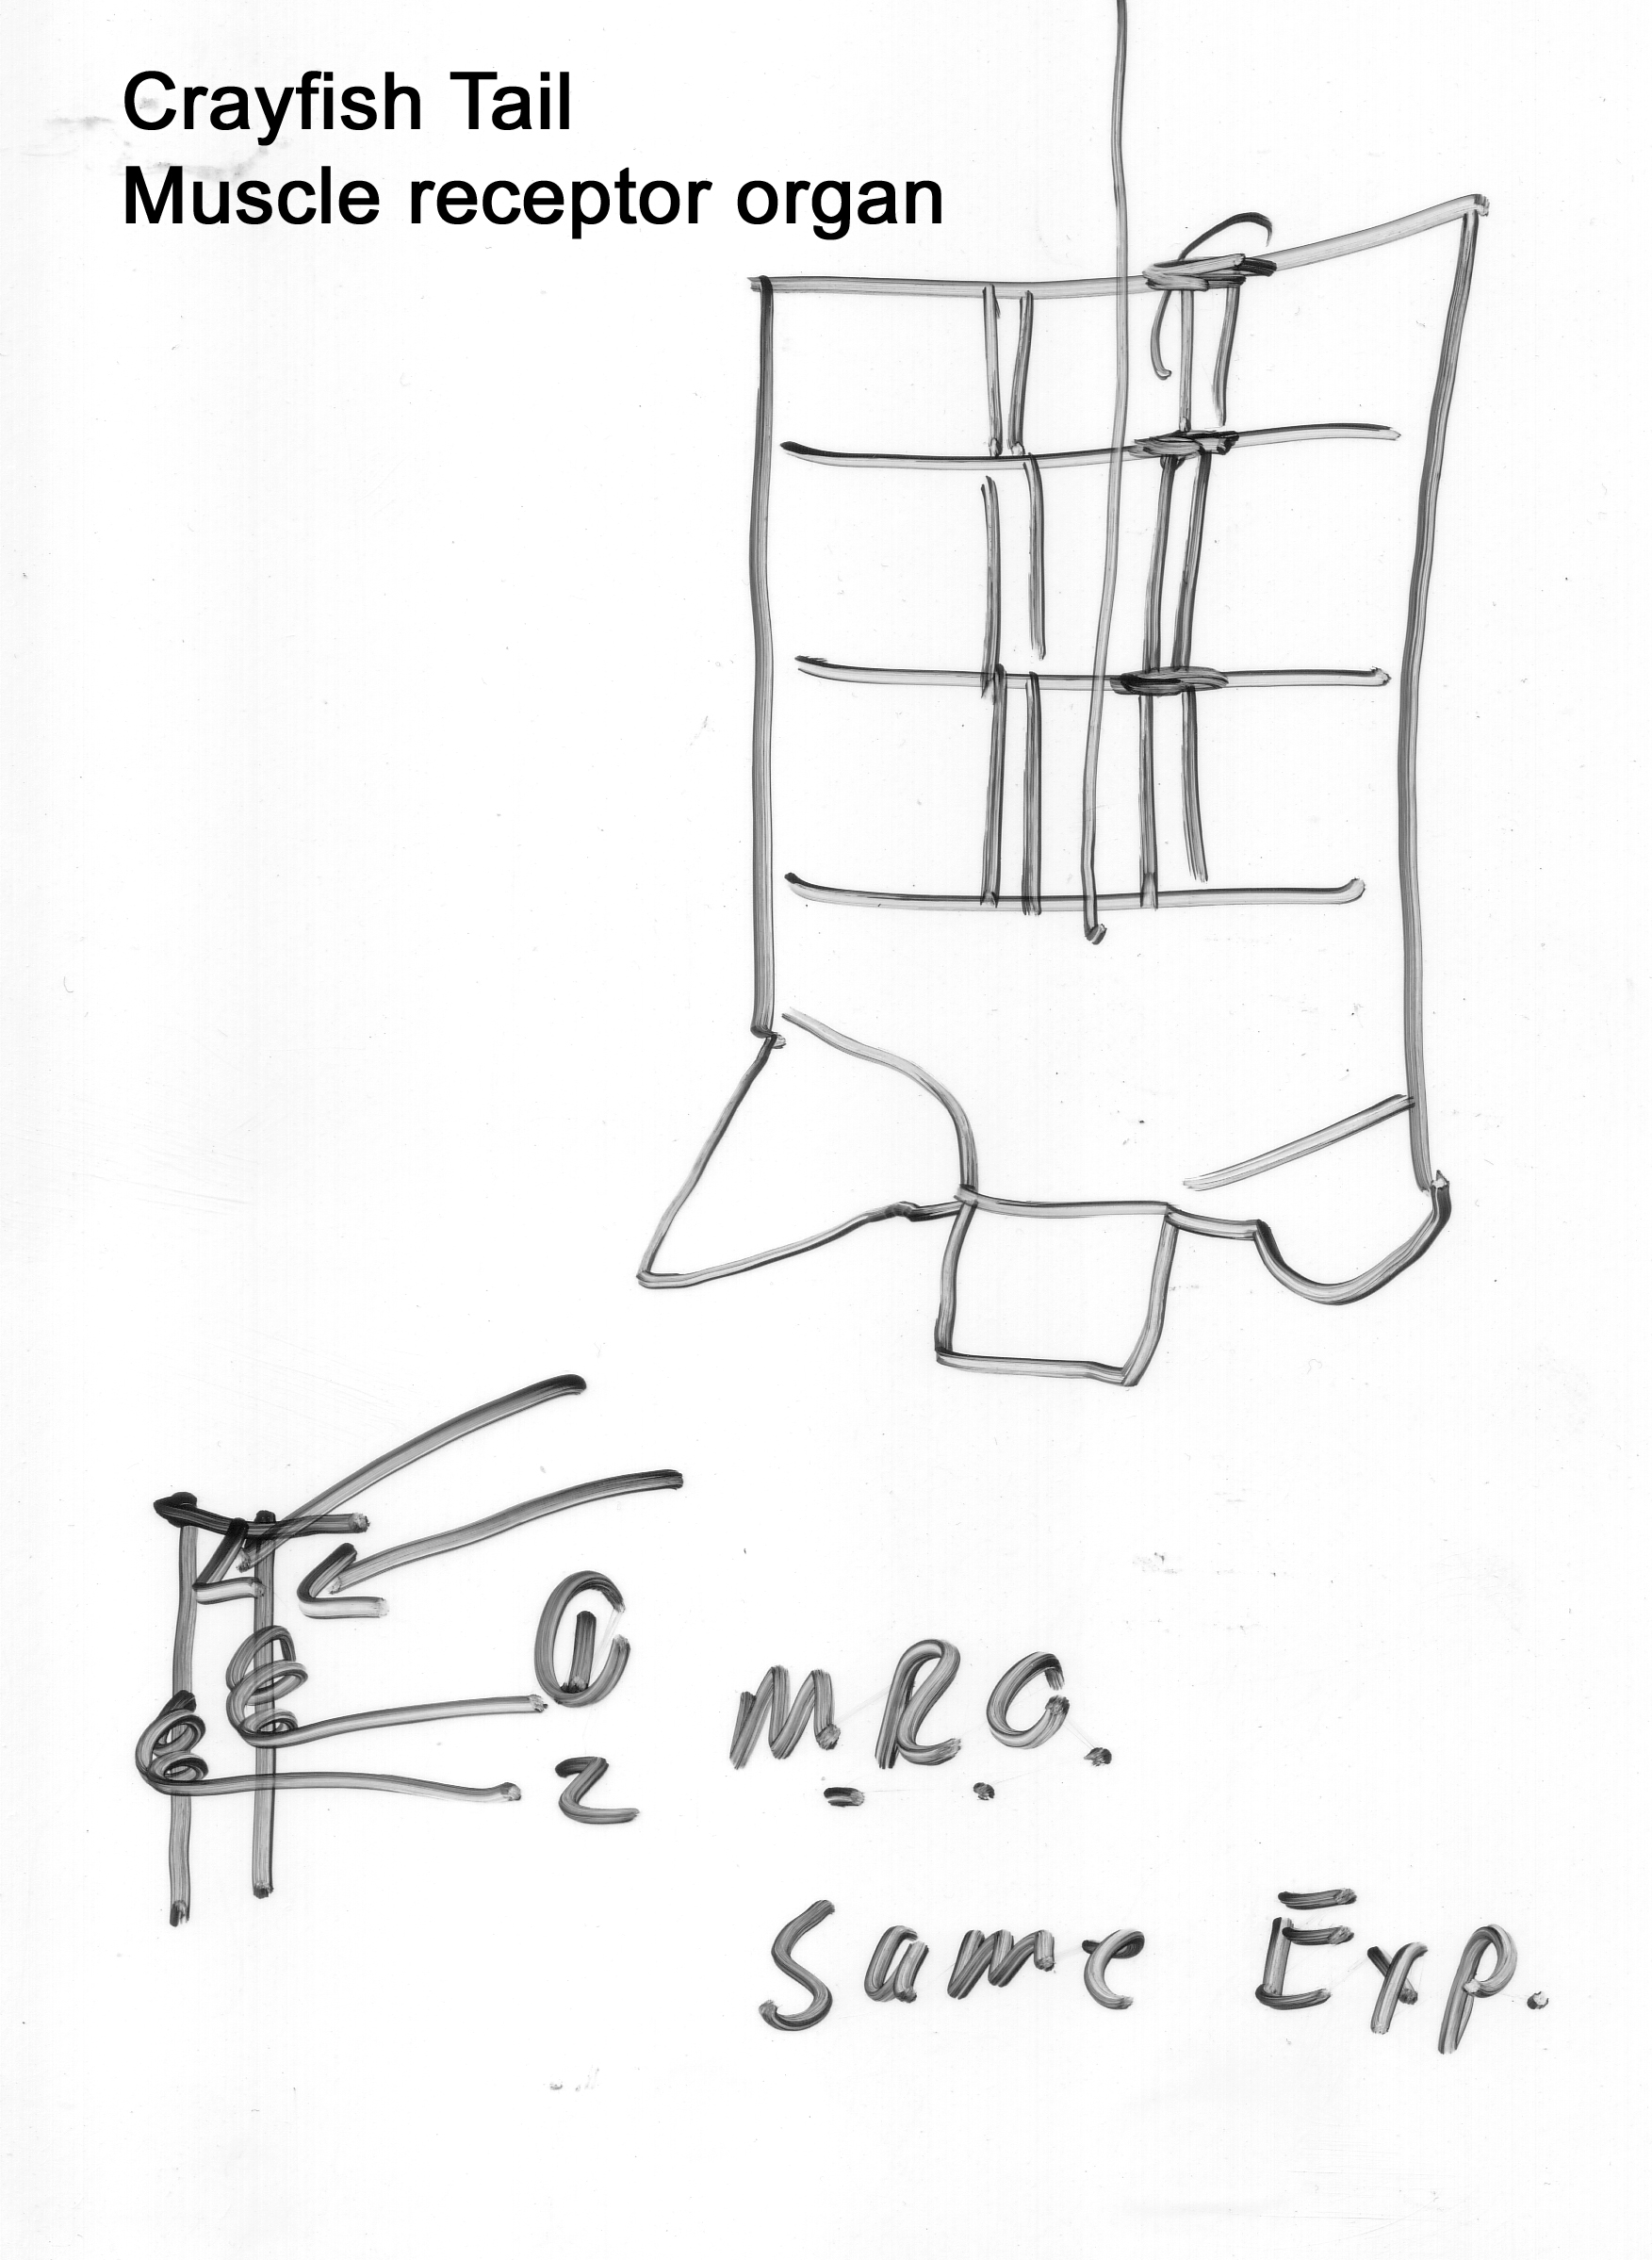 Crayfish Tail
Muscle receptor organ
1
2
M.R.O.
Same Exp.